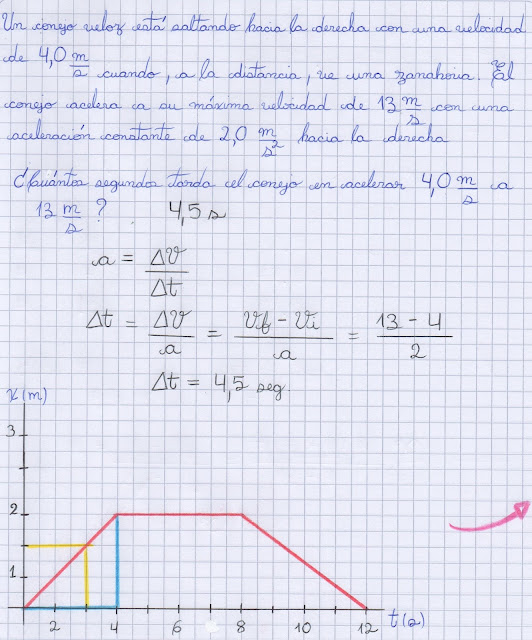 Un conejo veloz está saltando hacia la derecha con una velocidad
de 4,0 m/s cuando, a la distancia, ve una zanahoria. El
conejo acelera a su máxima velocidad de 13 m/s con una
aceleración constante de 2,0 m/s² hacia la derecha
¿Cuántos segundos tarda el conejo en acelerar 4,0 m/s a
13 m/s ? 4,5 s
a = ΔV/Δt
Δt = ΔV/a = Vf - Vi/a = 13 - 4/2
Δt = 4,5 seg
x(m)
3
2
1
2 4 6 8 10 12 t(s)